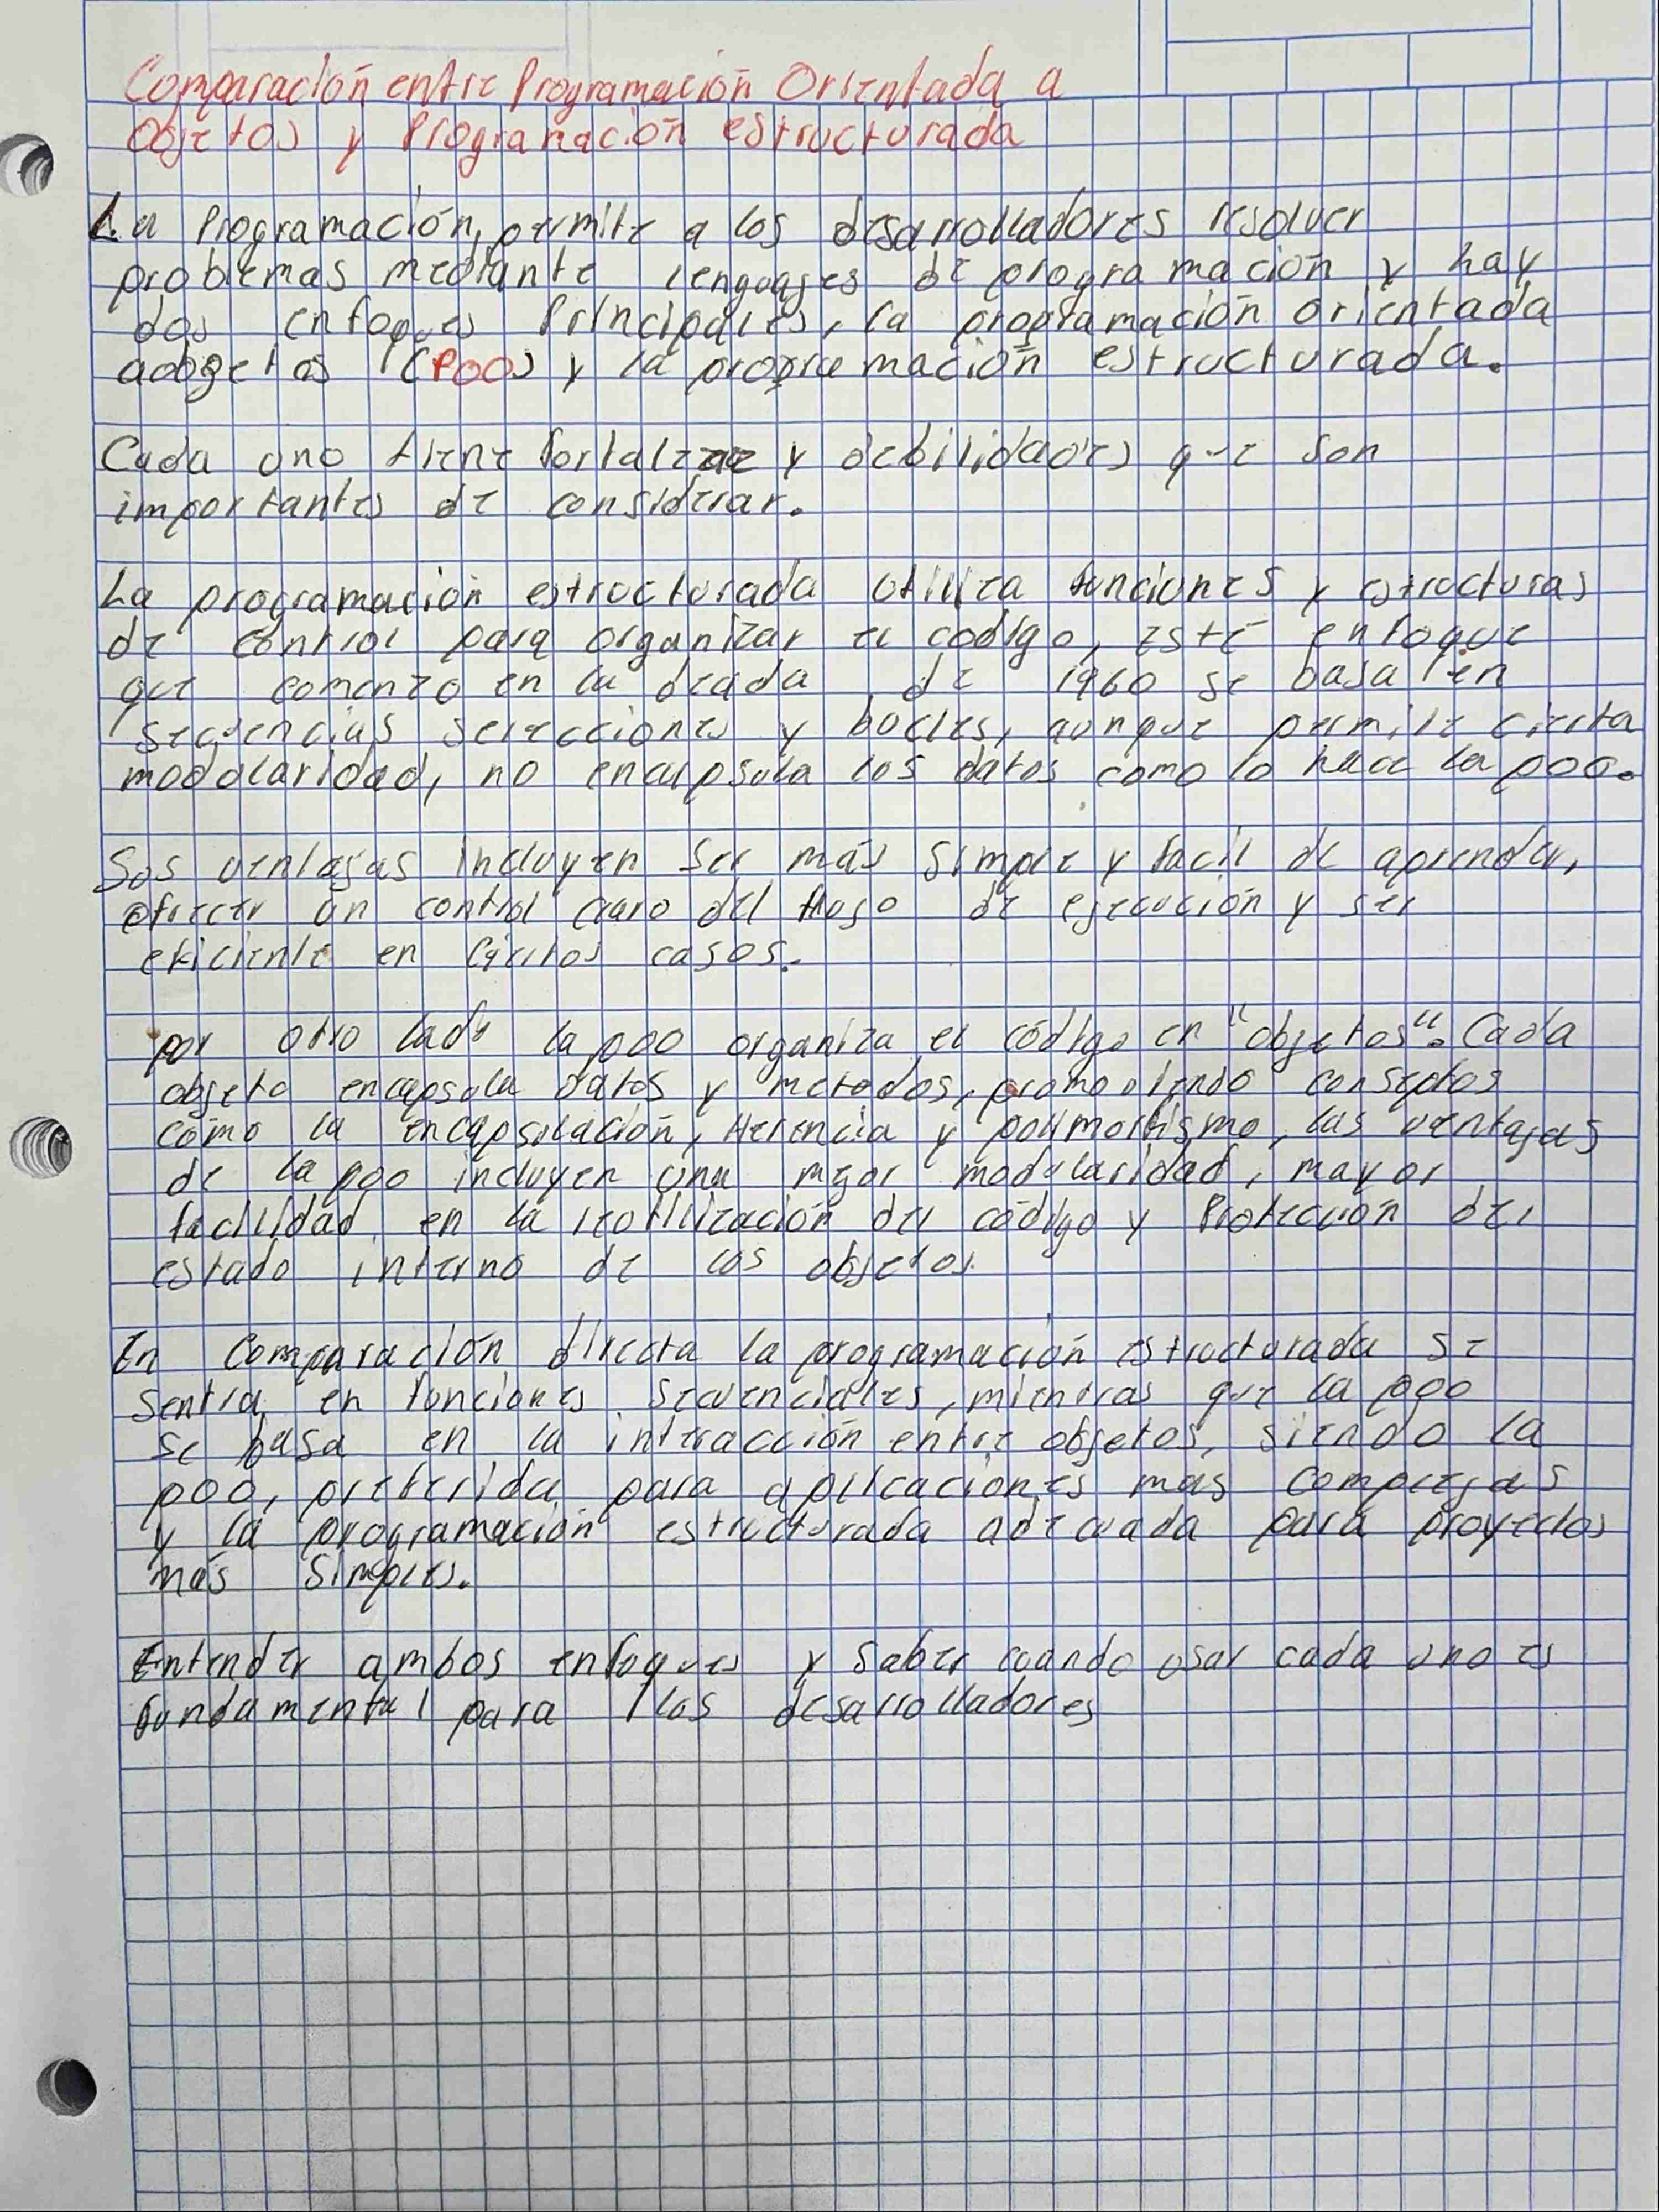 Comparación entre Programación Orientada a
Objetos y Programación estructurada
La Programación, permite a los desarrolladores resolver
problemas mediante lenguajes de programación y hay
dos enfoques Principales, la programación orientada
aobgetos (POO) y la programación estructurada.
Cada uno tiene fortalezae y debilidades que son
importantes de considerar.
La programación estructurada utiliza funciones y estructuras
de control para organizar el codigo, este enfoque
que comenzo en la decada de 1960 se basa en
secuencias selecciones y bucles, aunque permite cierta
modularidad, no encarpsula los datos como lo hace la poo.
Sus ventajas incluyen ser más simple y facil de aprender,
ofrecer un control claro del flujo de ejecución y ser
eficiente en ciertos casos.
por otro lado la poo organiza el código en "objetos". Cada
objeto encapsula datos y metodos, promoviendo conseptos
como la encapsulación, Herencia y polymorfismo, las ventajas
de la poo incluyen una mejor modularidad, mayor
facilidad en la reutilización del código y Protección del
estado interno de los objetos.
En Comparación directa la programación estructurada se
sentra en funciones secuenciales, mientras que la poo
se basa en la interacción entre objetos, siendo la
poo, preferida para aplicaciones mas complejas
y la programación estructurada adecuada para proyectos
más simples.
Entender ambos enfoques y saber cuando usar cada uno es
fundamental para los desarrolladores